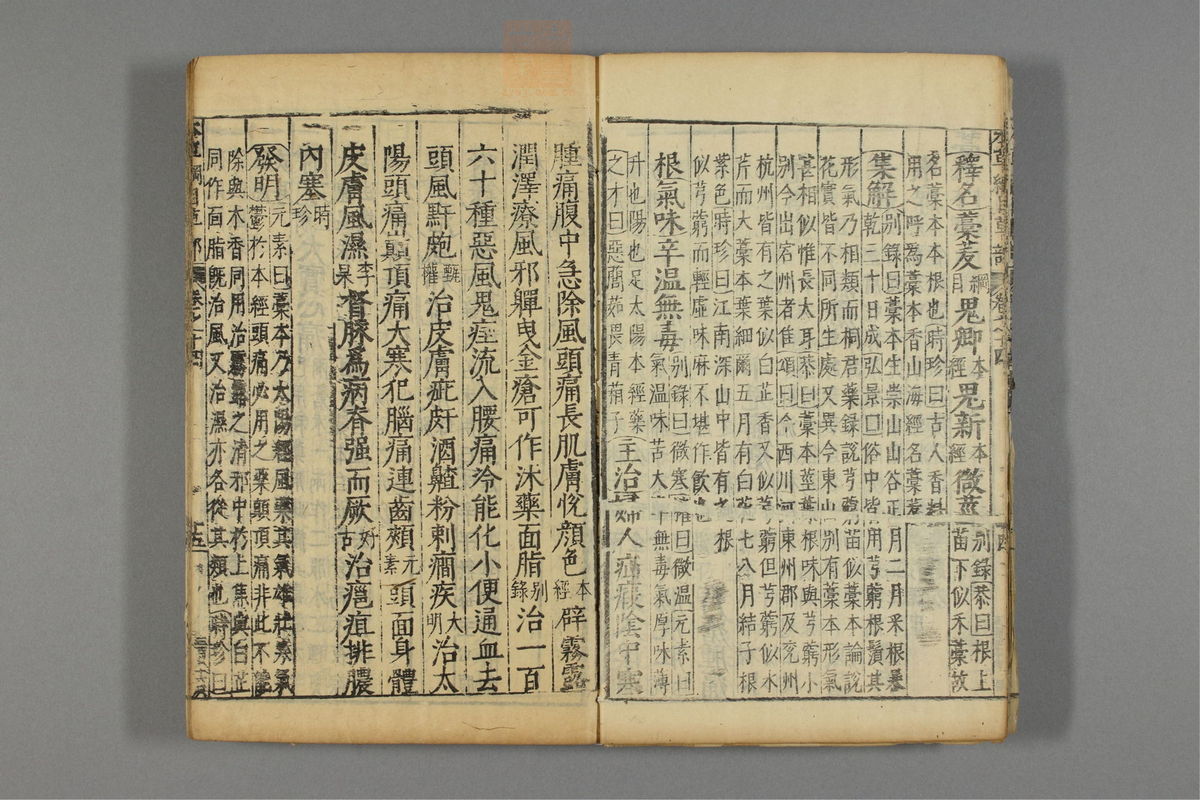 釋名藁茇綱目鬼卿本經鬼新本經微莖別錄恭曰根上苗下似禾藁故
名藁本本根也時珍曰古人香料
用之呼為藁本香山海經名藁茇
集解別錄曰藁本生崇山山谷正月二月采根暴
乾三十日成弘景曰俗中皆用芎藭根鬚其
形氣乃相類而桐君藥録說芎藭苗似藁本論說
花實皆不同所生處又異今東山別有藁本形氣
甚相似惟長大耳恭曰藁本莖葉根味與芎藭小
別今出宕州者佳頌曰今西川河東州郡及兗州
杭州皆有之葉似白芷香又似芎藭但芎藭似水
芹而大藁本葉細爾五月有白花七八月結子根
紫色時珍曰江南深山中皆有之根
似芎藭而輕虛味麻不堪作飲也
根氣味辛溫無毒別錄曰微寒權曰微溫元素曰
氣溫味苦大辛無毒氣厚味薄
升也陽也足太陽本經藥
之才曰惡䕡茹畏青葙子主治婦人疝瘕陰中寒
腫痛腹中急除風頭痛長肌膚悅顏色本經辟霧露
潤澤療風邪軃曳金瘡可作沐藥面脂別錄治一百
六十種惡風鬼疰流入腰痛冷能化小便通血去
頭風䵟皰甄權治皮膚疵皯酒齄粉刺癇疾大明治太
陽頭痛巔頂痛大寒犯腦痛連齒頰元素頭面身體
皮膚風濕李杲督脉為病脊强而厥好古治癰疽排膿
內塞時珍
發明元素曰藁本乃太陽經風藥其氣雄壯寒氣
鬱於本經頭痛必用之藥頭頂痛非此不能
除與木香同用治霧露之清邪中於上焦與白芷
同作面脂既治風又治濕亦各從其類也時珍曰